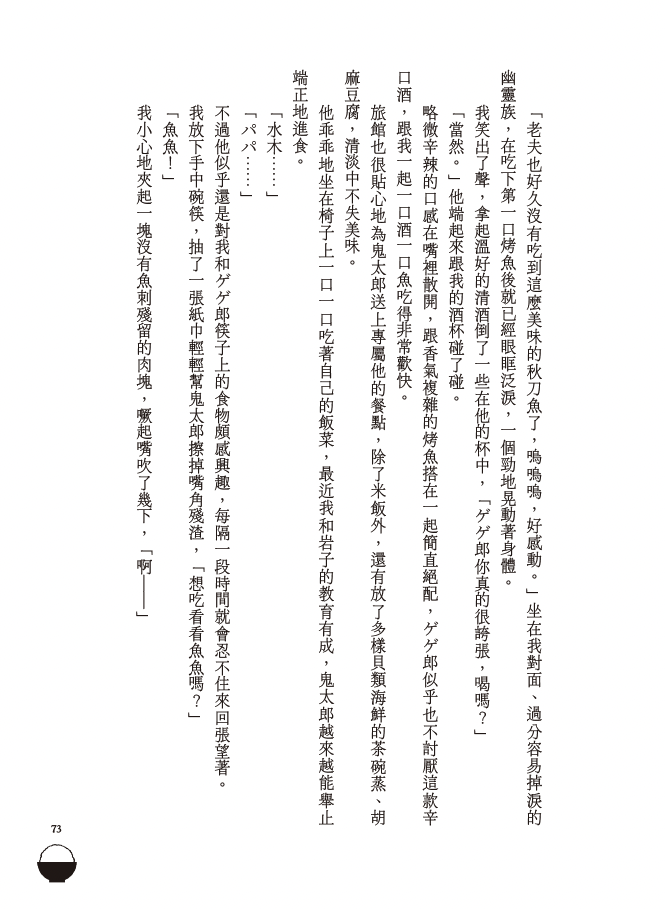 「老夫也好久沒有吃到這麼美味的秋刀魚了，嗚嗚嗚，好感動。」坐在我對面、過分容易掉淚的
幽靈族，在吃下第一口烤魚後就已經眼眶泛淚，一個勁地晃動著身體。
我笑出了聲，拿起溫好的清酒倒了一些在他的杯中，「ゲゲ郎你真的很誇張，喝嗎？」
「當然。」他端起來跟我的酒杯碰了碰。
略微辛辣的口感在嘴裡散開，跟香氣複雜的烤魚搭在一起簡直絕配，ゲゲ郎似乎也不討厭這款辛
口酒，跟我一起一口酒一口魚吃得非常歡快。
旅館也很貼心地為鬼太郎送上專屬他的餐點，除了米飯外，還有放了多樣貝類海鮮的茶碗蒸、胡
麻豆腐，清淡中不失美味。
他乖乖地坐在椅子上一口一口吃著自己的飯菜，最近我和岩子的教育有成，鬼太郎越來越能舉止
端正地進食。
「水木⋯⋯」
「パパ⋯⋯」
不過他似乎還是對我和ゲゲ郎筷子上的食物頗感興趣，每隔一段時間就會忍不住來回張望著。
我放下手中碗筷，抽了一張紙巾輕輕幫鬼太郎擦掉嘴角殘渣，「想吃看看魚魚嗎？」
「魚魚！」
我小心地夾起一塊沒有魚刺殘留的肉塊，噘起嘴吹了幾下，「啊——」
73